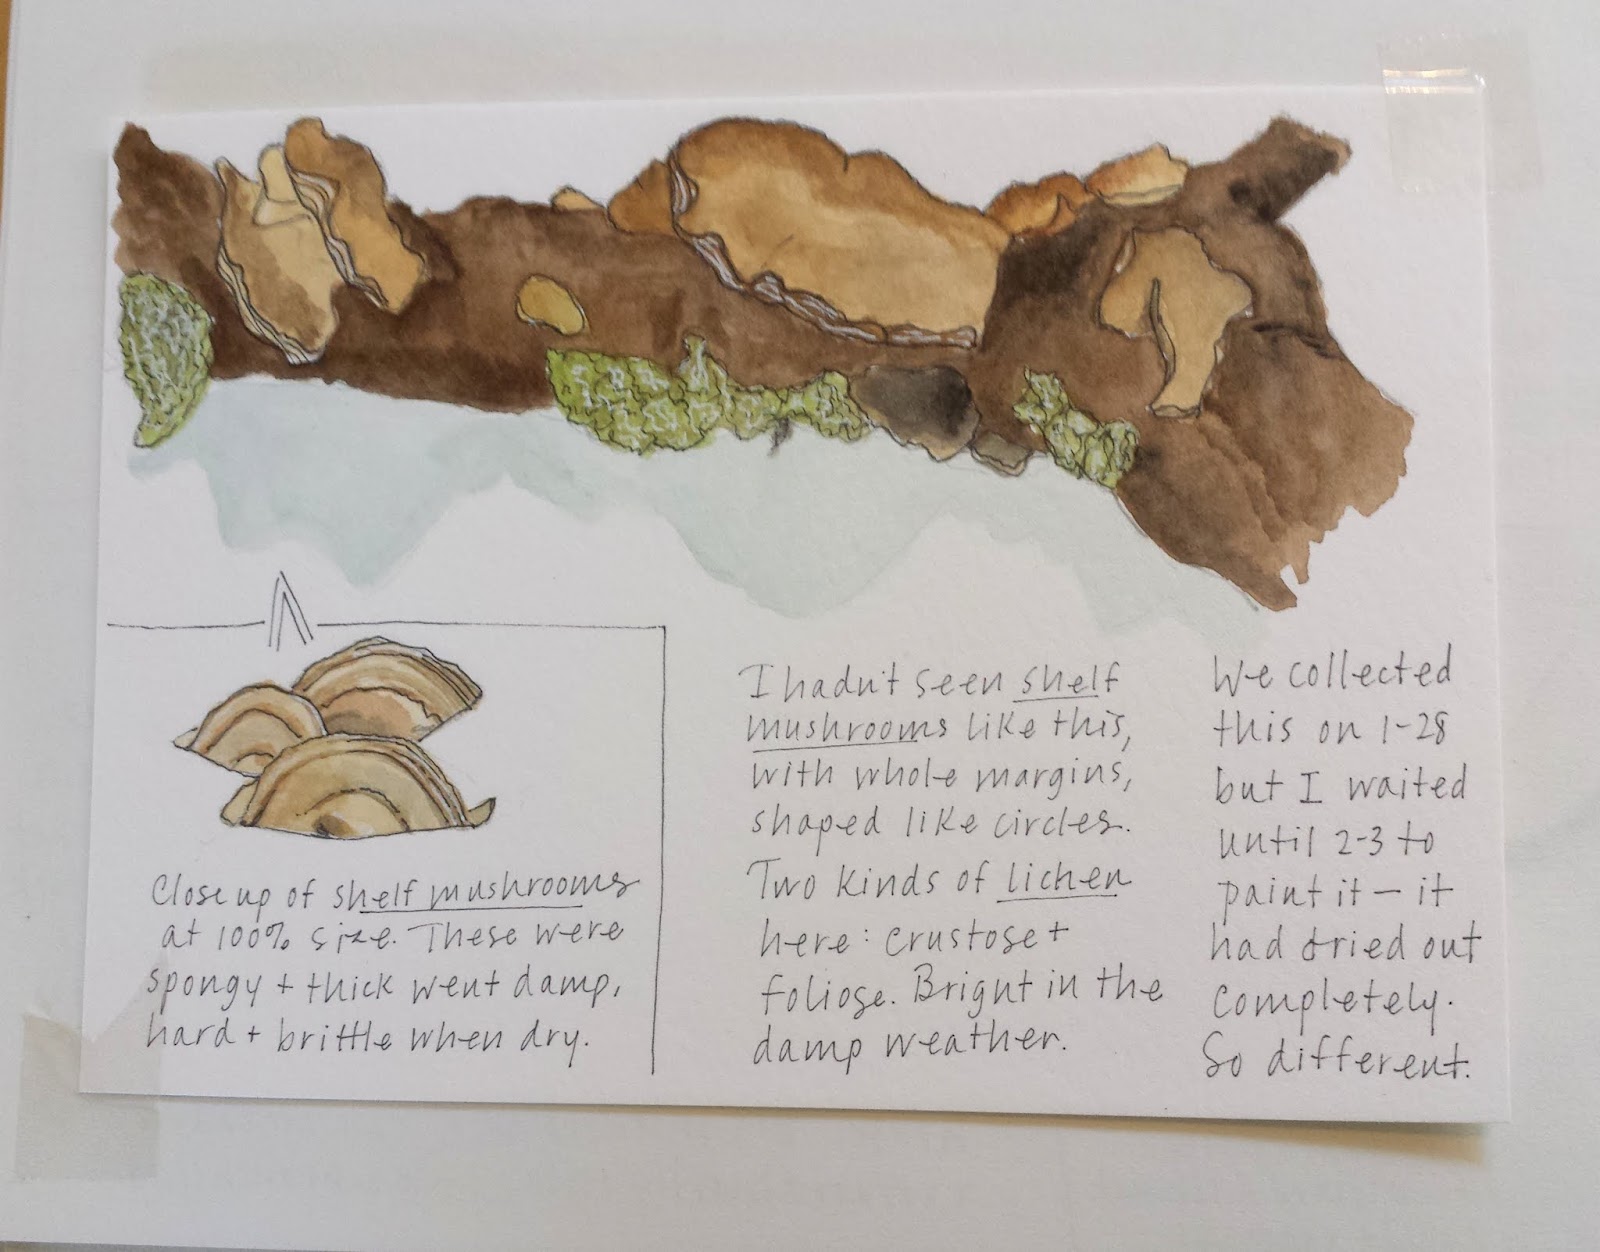 Close up of shelf mushrooms
at 100% size. These were
spongy + thick went damp,
hard + brittle when dry.
I hadn't seen shelf
mushrooms like this,
with whole margins,
shaped like circles.
Two kinds of lichen
here: crustose +
foliose. Bright in the
damp weather.
We collected
this on 1-28
but I waited
until 2-3 to
paint it — it
had dried out
completely.
So different.